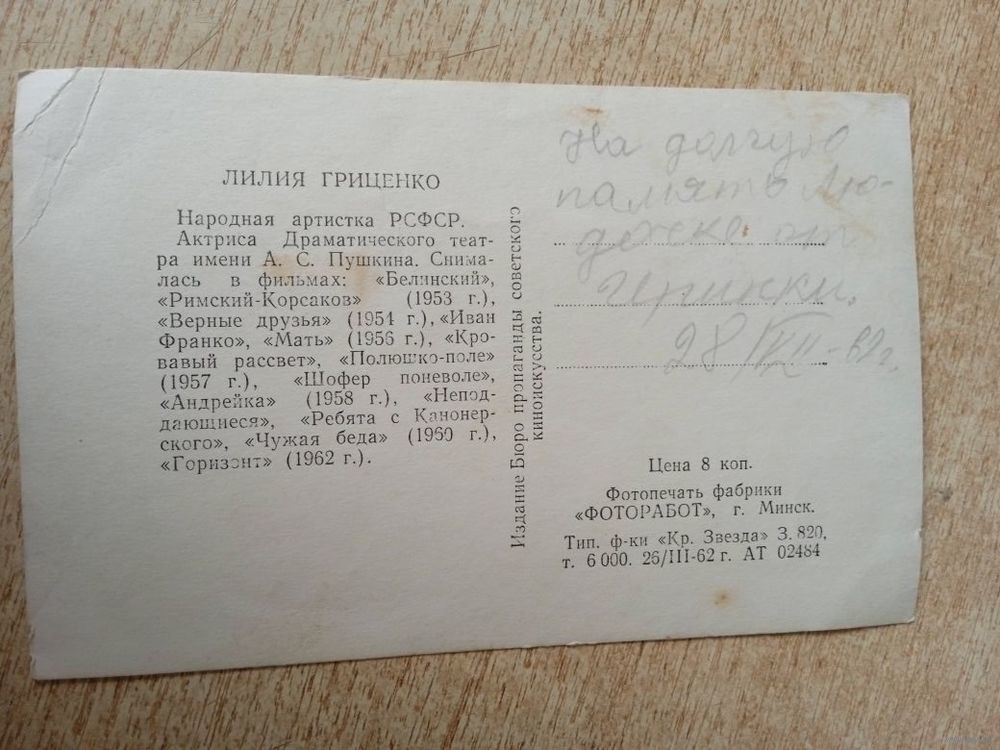 ЛИЛИЯ ГРИЦЕНКО
Народная артистка РСФСР.
Актриса Драматического теат-
ра имени А. С. Пушкина. Снима-
лась в фильмах: «Белинский»,
«Римский-Корсаков» (1953 г.),
«Верные друзья» (1954 г.), «Иван
Франко», «Мать» (1956 г.), «Кро-
вавый рассвет», «Полюшко-поле»
(1957 г.), «Шофер поневоле»,
«Андрейка» (1958 г.), «Непод-
дающиеся», «Ребята с Канонер-
ского», «Чужая беда» (1960 г.),
«Горизонт» (1962 г.).
Издание Бюро пропаганды советского
киноискусства.
На долгую
память Лю-
дочке от
Иринки.
28/VII-62г.
Цена 8 коп.
Фотопечать фабрики
«ФОТОРАБОТ», г. Минск.
Тип. ф-ки «Кр. Звезда» З. 820,
т. 6 000. 26/III-62 г. АТ 02484